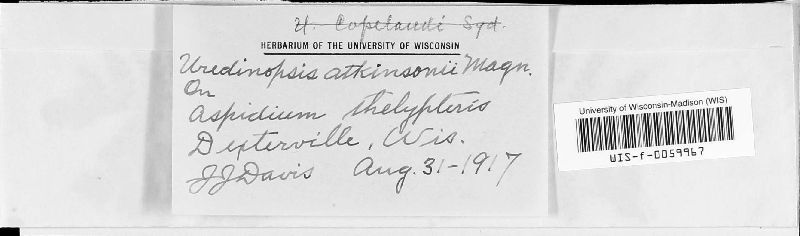 U. Copelandi Syd.
HERBARIUM OF THE UNIVERSITY OF WISCONSIN
Uredinopsis atkinsonii Magn.
On
Aspidium thelypteris
Dexterville, Wis.
JJDavis Aug. 31-1917
University of Wisconsin-Madison (WIS)
WIS-f-0059967